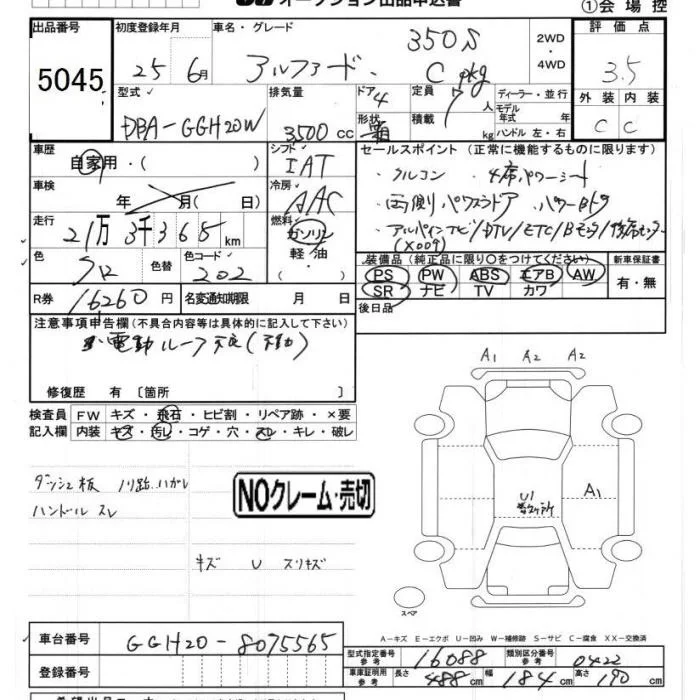 オークション出品申込書
①会場控
出品番号 初度登録年月 車名・グレード 評価点
5045 25 6月 アルファード 350S C pkg 2WD・4WD 3.5
型式 排気量 ドア 4 定員 7人 ディーラー・並行 外装 内装
DBA-GGH20W 3500cc 形状 箱 積載 kg モデル年式 年 ハンドル 左・右 C C
車歴 自家用・( ) シフト IAT セールスポイント (正常に機能するものに限ります)
車検 年 月( 日) 冷房 AAC ・クルコン ・4席パワーシート
走行 21万3千365km 燃料 ガソリン・軽油・( ) 両側パワスラドア パワーBドア
アルパインナビ/DTV/ETC/Bモニタ/
(X009)
色 クロ 色替 色コード 202 装備品(純正品に限り○をつけてください) 新車保証書
PS PW ABS エアB AW 有・無
SR ナビ TV カワ
R券 16260円 名変通知期限 月 日 後日品
注意事項申告欄(不具合内容等は具体的に記入して下さい)
電動ルーフ不良(不動)
修復歴 有 〔箇所 〕
検査員 FW キズ・飛石・ヒビ割・リペア跡・×要
記入欄 内装 キズ・汚レ・コゲ・穴・スレ・キレ・破レ
ダッシュ板 ノリ跡、ハガレ
ハンドル スレ
NOクレーム・売切
キズ U スリキズ
A1 A2 A2
A1
U1
スペア
A-キズ E-エクボ U-凹み W-補修跡 S-サビ C-腐食 XX-交換済
車台番号 GGH20-8075565
型式指定番号 参考 16088 類別区分番号 参考 0422
登録番号 車庫証明用 参考 長さ 488cm 幅 184cm 高さ 190cm